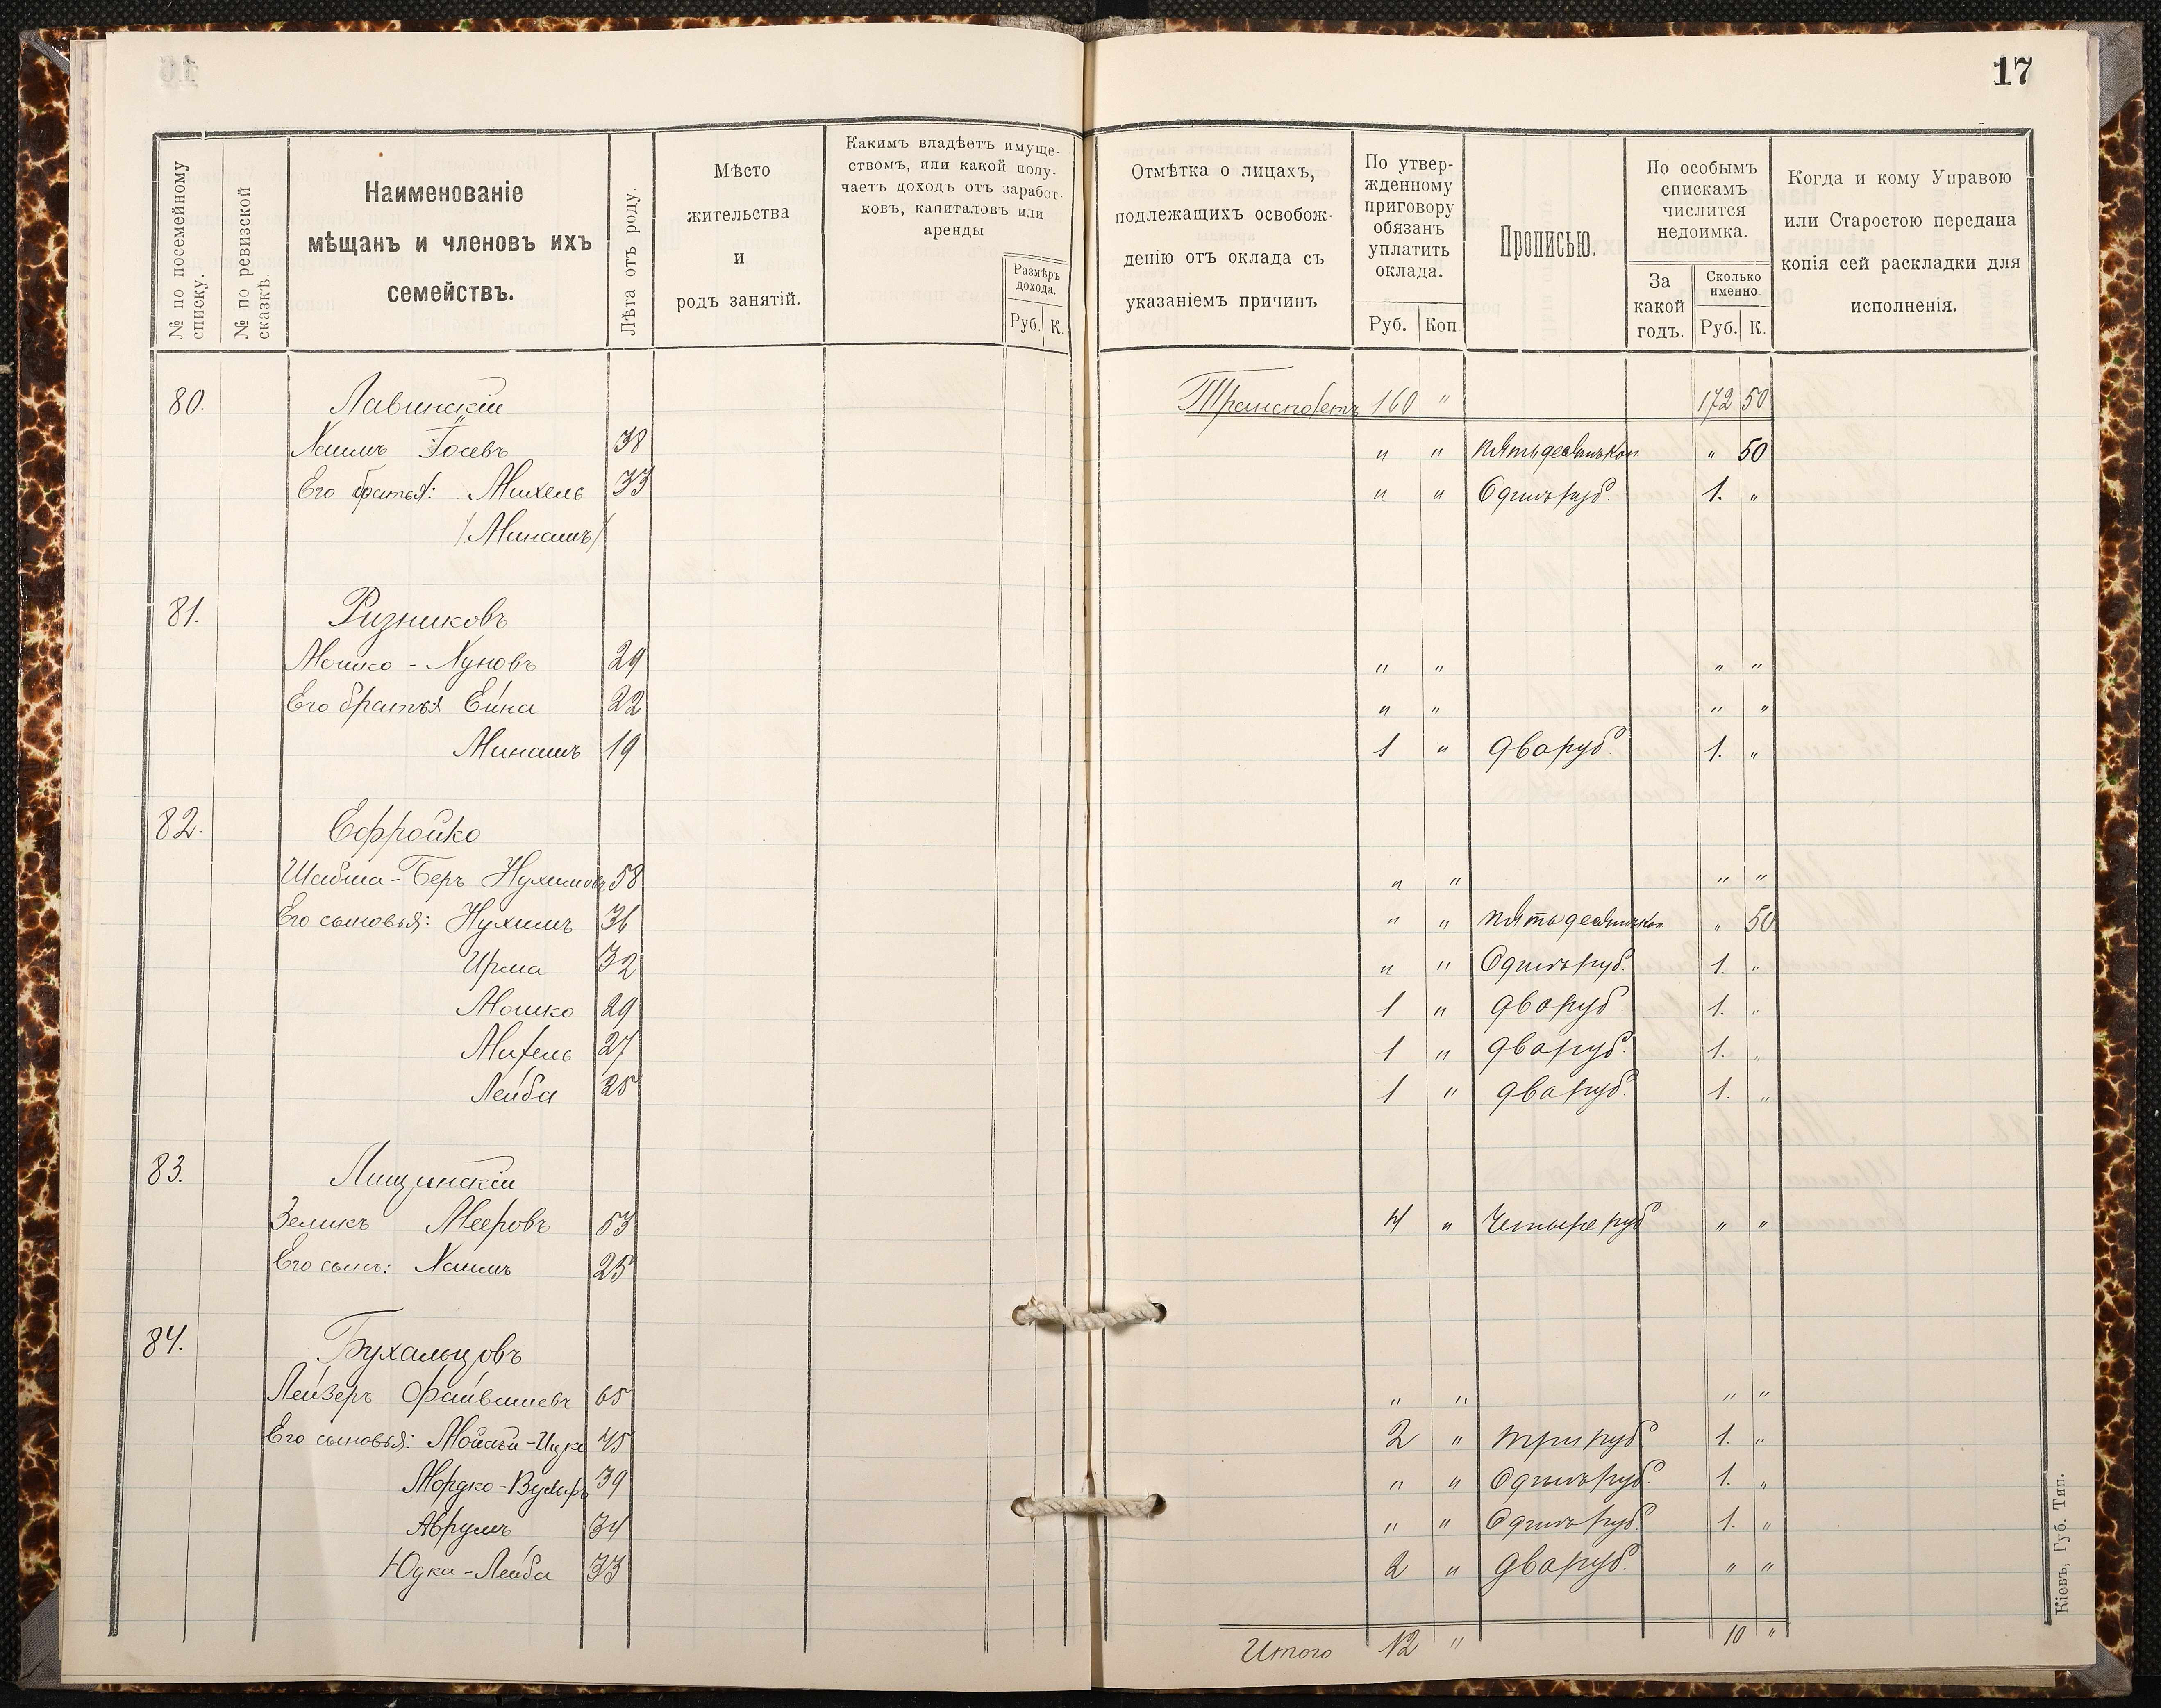 17
№ по посемейному списку.
№ по ревизской сказкѣ.
Наименованіе
мѣщанъ и членовъ ихъ
семействъ.
Лѣта отъ роду.
Мѣсто
жительства
и
родъ занятій.
Какимъ владѣетъ имуще-
ствомъ, или какой полу-
чаетъ доходъ отъ заработ-
ковъ, капиталовъ или
аренды
Размѣръ
дохода.
Руб. К.
Отмѣтка о лицахъ,
подлежащихъ освобож-
денію отъ оклада съ
указаніемъ причинъ
По утвер-
жденному
приговору
обязанъ
уплатить
оклада.
Руб. Коп
Прописью.
По особымъ
спискамъ
числится
недоимка.
За
какой
годъ.
Сколько
именно
Руб. К.
Когда и кому Управою
или Старостою передана
копія сей раскладки для
исполненія.
80. Лавинскій Транспортъ 160 " 172 50
Хаимъ Іосевъ 38 " " пятьдесятъ коп " 50
Его братья: Михель 33 " " Одинъ руб. 1. "
/Минашъ/
81. Ризниковъ
Мошко - Хуновъ 29 " " " "
Его братья Ейна 22 " " " "
Минашъ 19 1 " два руб. 1. "
82. Ефройко
Шабша-Беръ Нухимовъ 58 " " " "
Его сыновья: Нухимъ 36 " " пятьдесятъ коп " 50
Ирма 32 " " Одинъ руб. 1. "
Мошко 29 1 " два руб 1. "
Михель 27 1 " два руб. 1. "
Лейба 25 1 " два руб. 1. "
83. Лищинскій
Зеликъ Мееровъ 53 4 " Четыре руб " "
Его сынъ: Хаимъ 25
84. Бухальцовъ
Лейзеръ Файвишевъ 65 " " " "
Его сыновья: Мойсей-Ицко 45 2 " три руб 1. "
Мордко-Вульфъ 39 " " Одинъ руб. 1. "
Аврумъ 34 " " Одинъ руб. 1. "
Юдка-Лейба 33 2 " два руб. " "
Итого 12 " 10 "
Кіевъ, Губ. Тип.